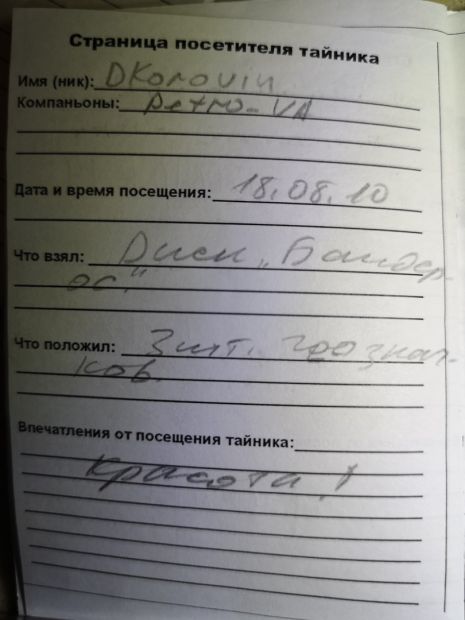 Страница посетителя тайника
Имя (ник): DKorovin
Компаньоны: Retro-VA
Дата и время посещения: 18.08.10
Что взял: Диск „Бандер-
ос“
Что положил: 3 шт. геознач-
ков.
Впечатления от посещения тайника:
Красота!